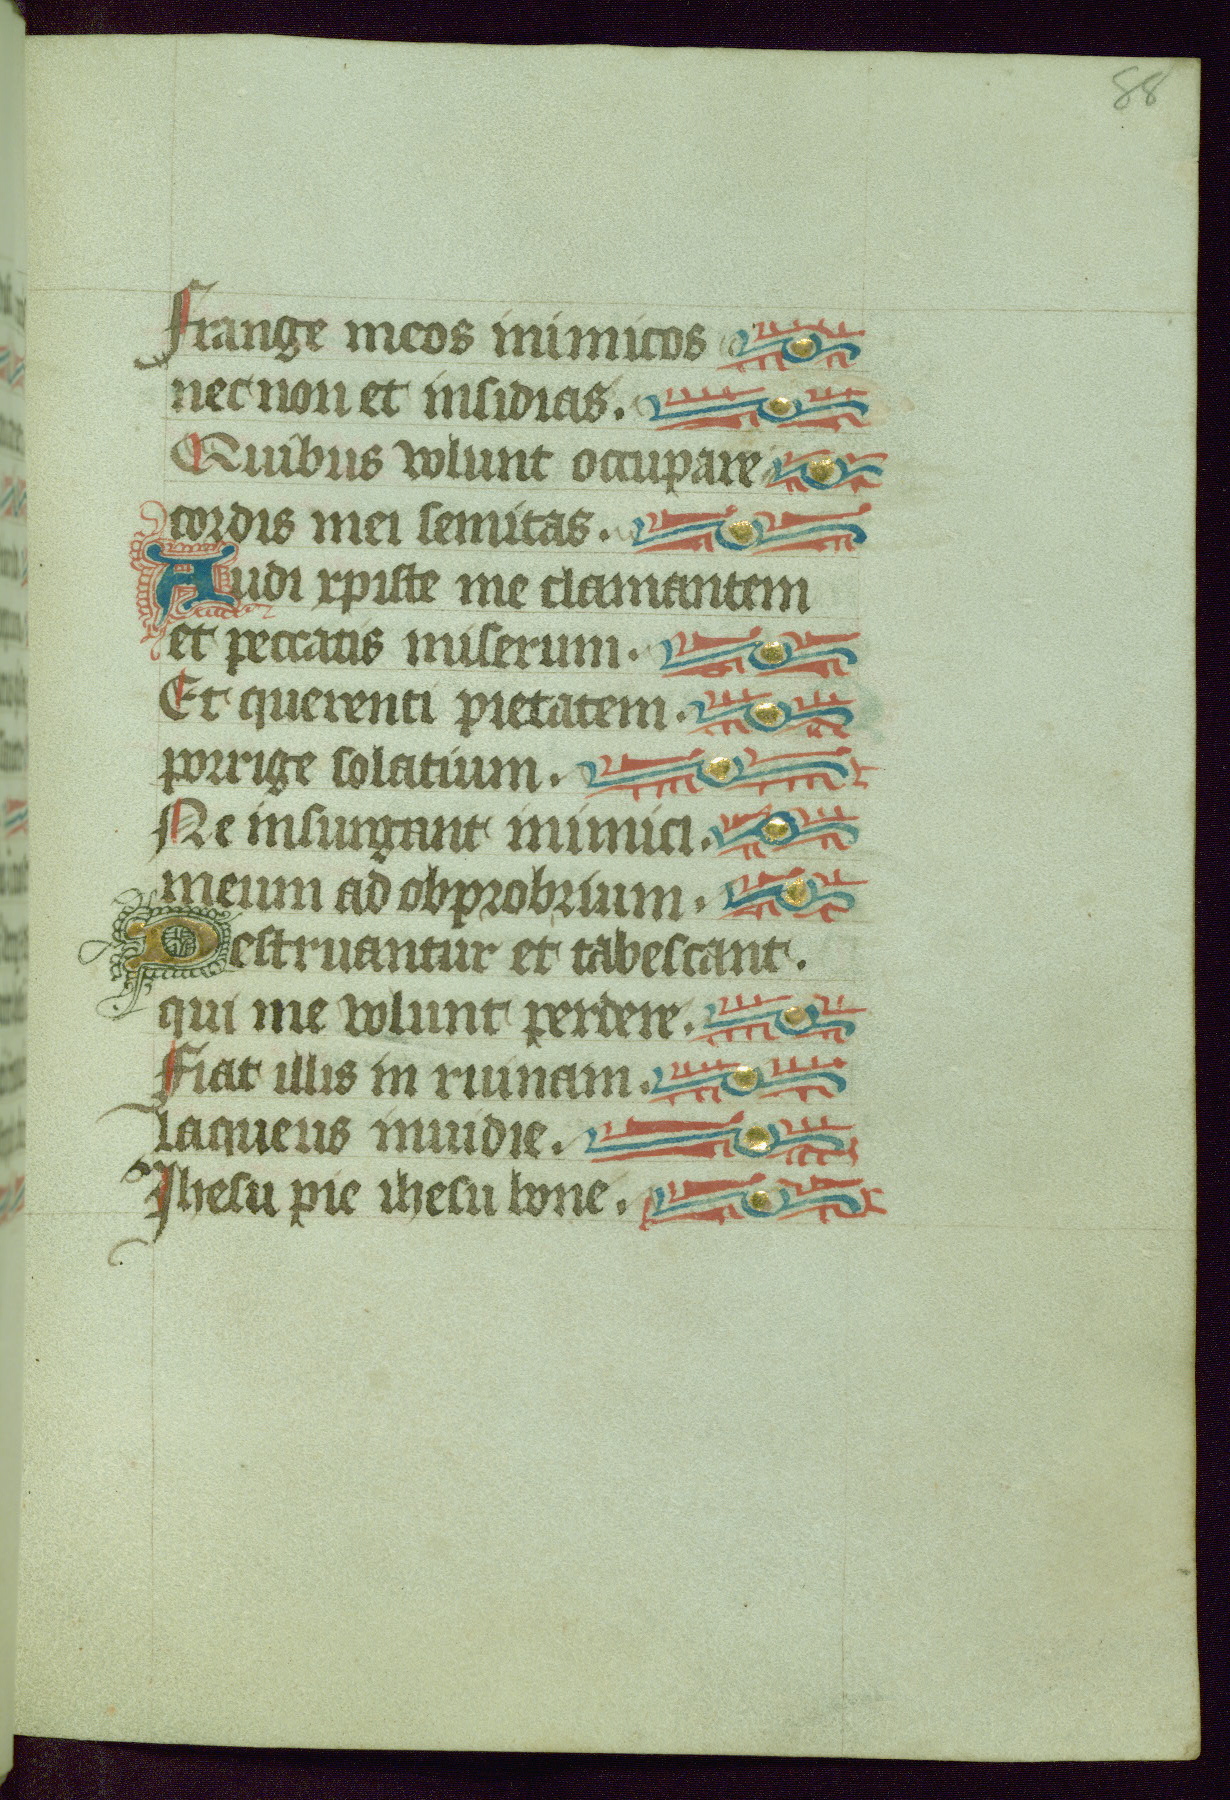 88
Frange meos inimicos
nec non et insidias.
Quibus volunt occupare
cordis mei semitas.
Audi xpiste me clamantem
et peccatis miserum.
Et querenti pietatem.
porrige solatium.
Ne insurgant inimici.
meum ad obprobrium.
Destruantur et tabescant.
qui me volunt perdere.
Fiat illis in ruinam.
laqueus inuidie.
Jhesu pie ihesu bone.